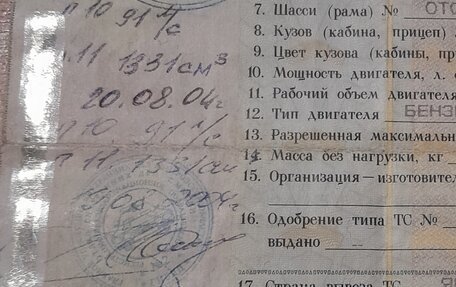 п 10 91 л/с
п.11 1331 см³
20.08.04г
п 10 91 л/с
п 11 1331 см
19.08.2004г
7. Шасси (рама) № ОТС
8. Кузов (кабина, прицеп)
9. Цвет кузова (кабины, пр
10. Мощность двигателя, л.
11. Рабочий объем двигателя
12. Тип двигателя БЕНЗ
13. Разрешенная максимальн
14. Масса без нагрузки, кг
15. Организация — изготовител
16. Одобрение типа ТС №
выдано
17. Страна вывоза ТС